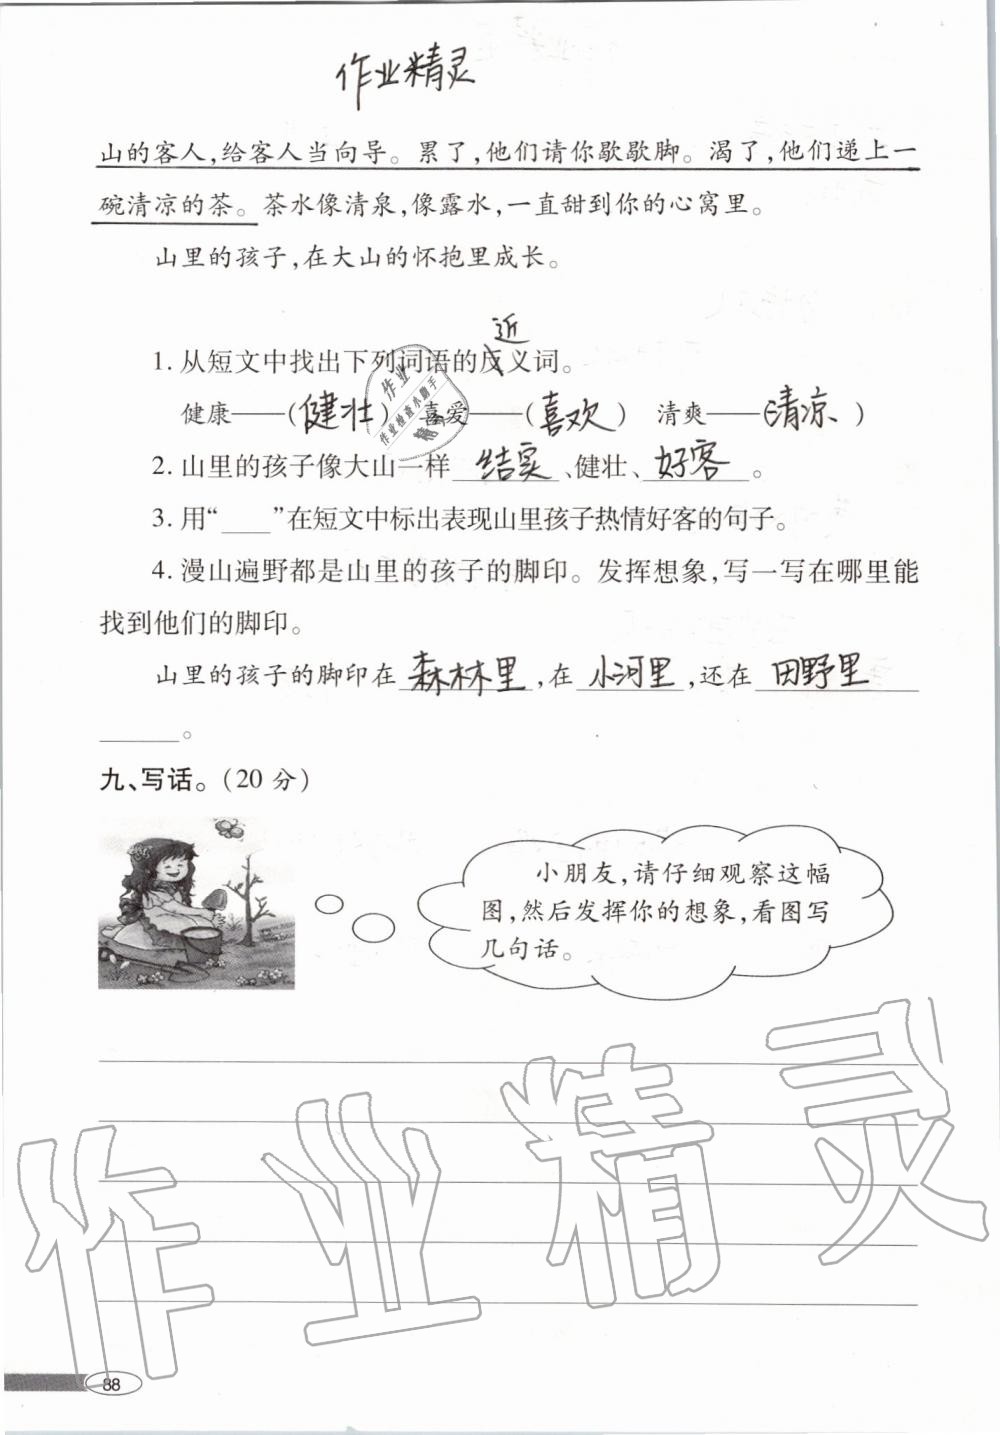 作业精灵
山的客人,给客人当向导。累了,他们请你歇歇脚。渴了,他们递上一
碗清凉的茶。茶水像清泉,像露水,一直甜到你的心窝里。
山里的孩子,在大山的怀抱里成长。
近
1. 从短文中找出下列词语的反义词。
健康——(健壮) 喜爱——(喜欢) 清爽——(清凉)
2. 山里的孩子像大山一样 结实 、健壮、 好客 。
3. 用“___”在短文中标出表现山里孩子热情好客的句子。
4. 漫山遍野都是山里的孩子的脚印。发挥想象,写一写在哪里能
找到他们的脚印。
山里的孩子的脚印在 森林里 ,在 小河里 ,还在 田野里
______。
九、写话。(20 分)
小朋友,请仔细观察这幅
图,然后发挥你的想象,看图写
几句话。
作业精灵
88